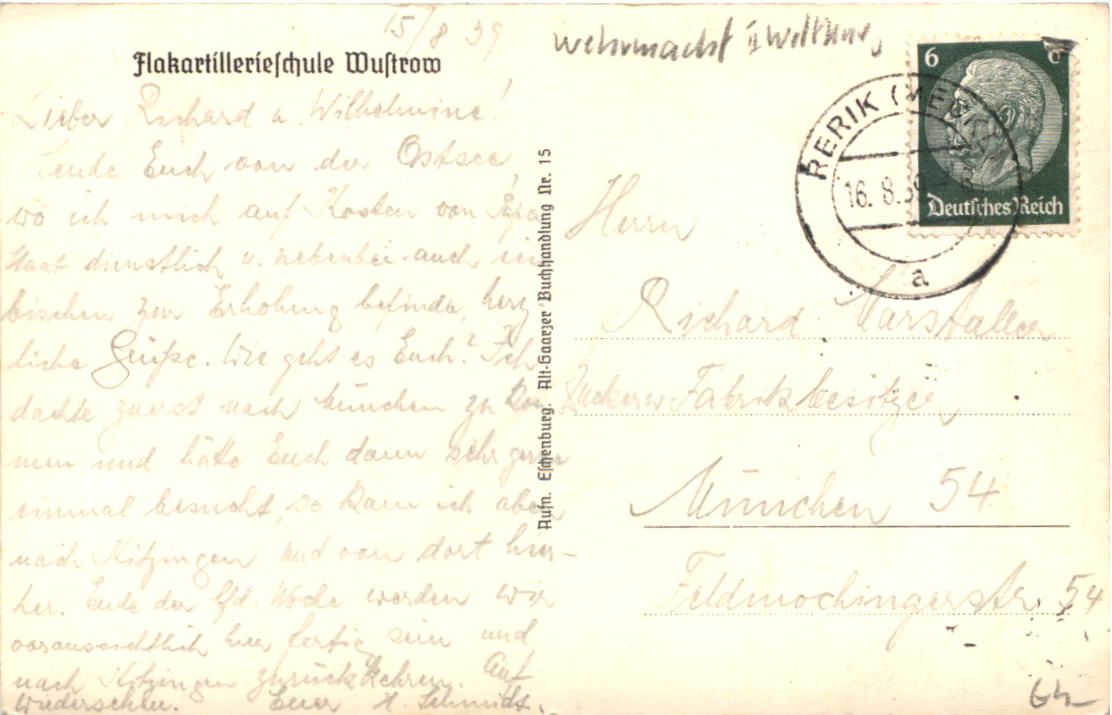 15/8 39
Wehrmacht II
Flakartillerieschule Wustrow
Lieber Richard u. Wilhelmine!
Sende Euch von der Ostsee,
wo ich mich auf Kosten von Papa
Staat dienstlich u. nebenbei auch ein
bischen zur Erholung befinde, herz
liche Grüße. Wie geht es Euch? Ich
dachte zuerst nach München zu kom
men und hätte Euch dann sehr gerne
einmal besucht, so kam ich aber
nach Kitzingen und von dort hier-
her. Ende der lfd. Woche werden wir
voraussichtlich hier fertig sein und
nach Kitzingen zurückkehren. Auf
Wiedersehen. Euer H. Schmidt.
Aufn. Eschenburg. Alt-Gaarzer Buchhandlung Nr. 15
6
Deutsches Reich
RERIK (MECKL)
16. 8.39
a
Herrn
Richard Marstaller
Fabrikbesitzer
München 54
Feldmochingerstr. 54